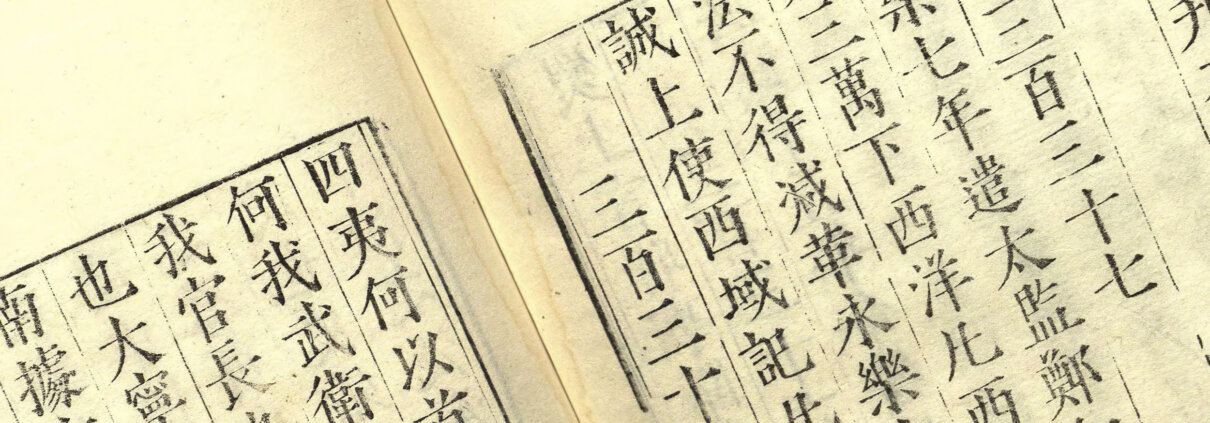 三百三十七
樂七年遣太監鄭
三萬下西洋凡西
法不得減革永樂
誠上使西域記
三百三十
四夷何以
何我武衛
我官長
也大寧
南據